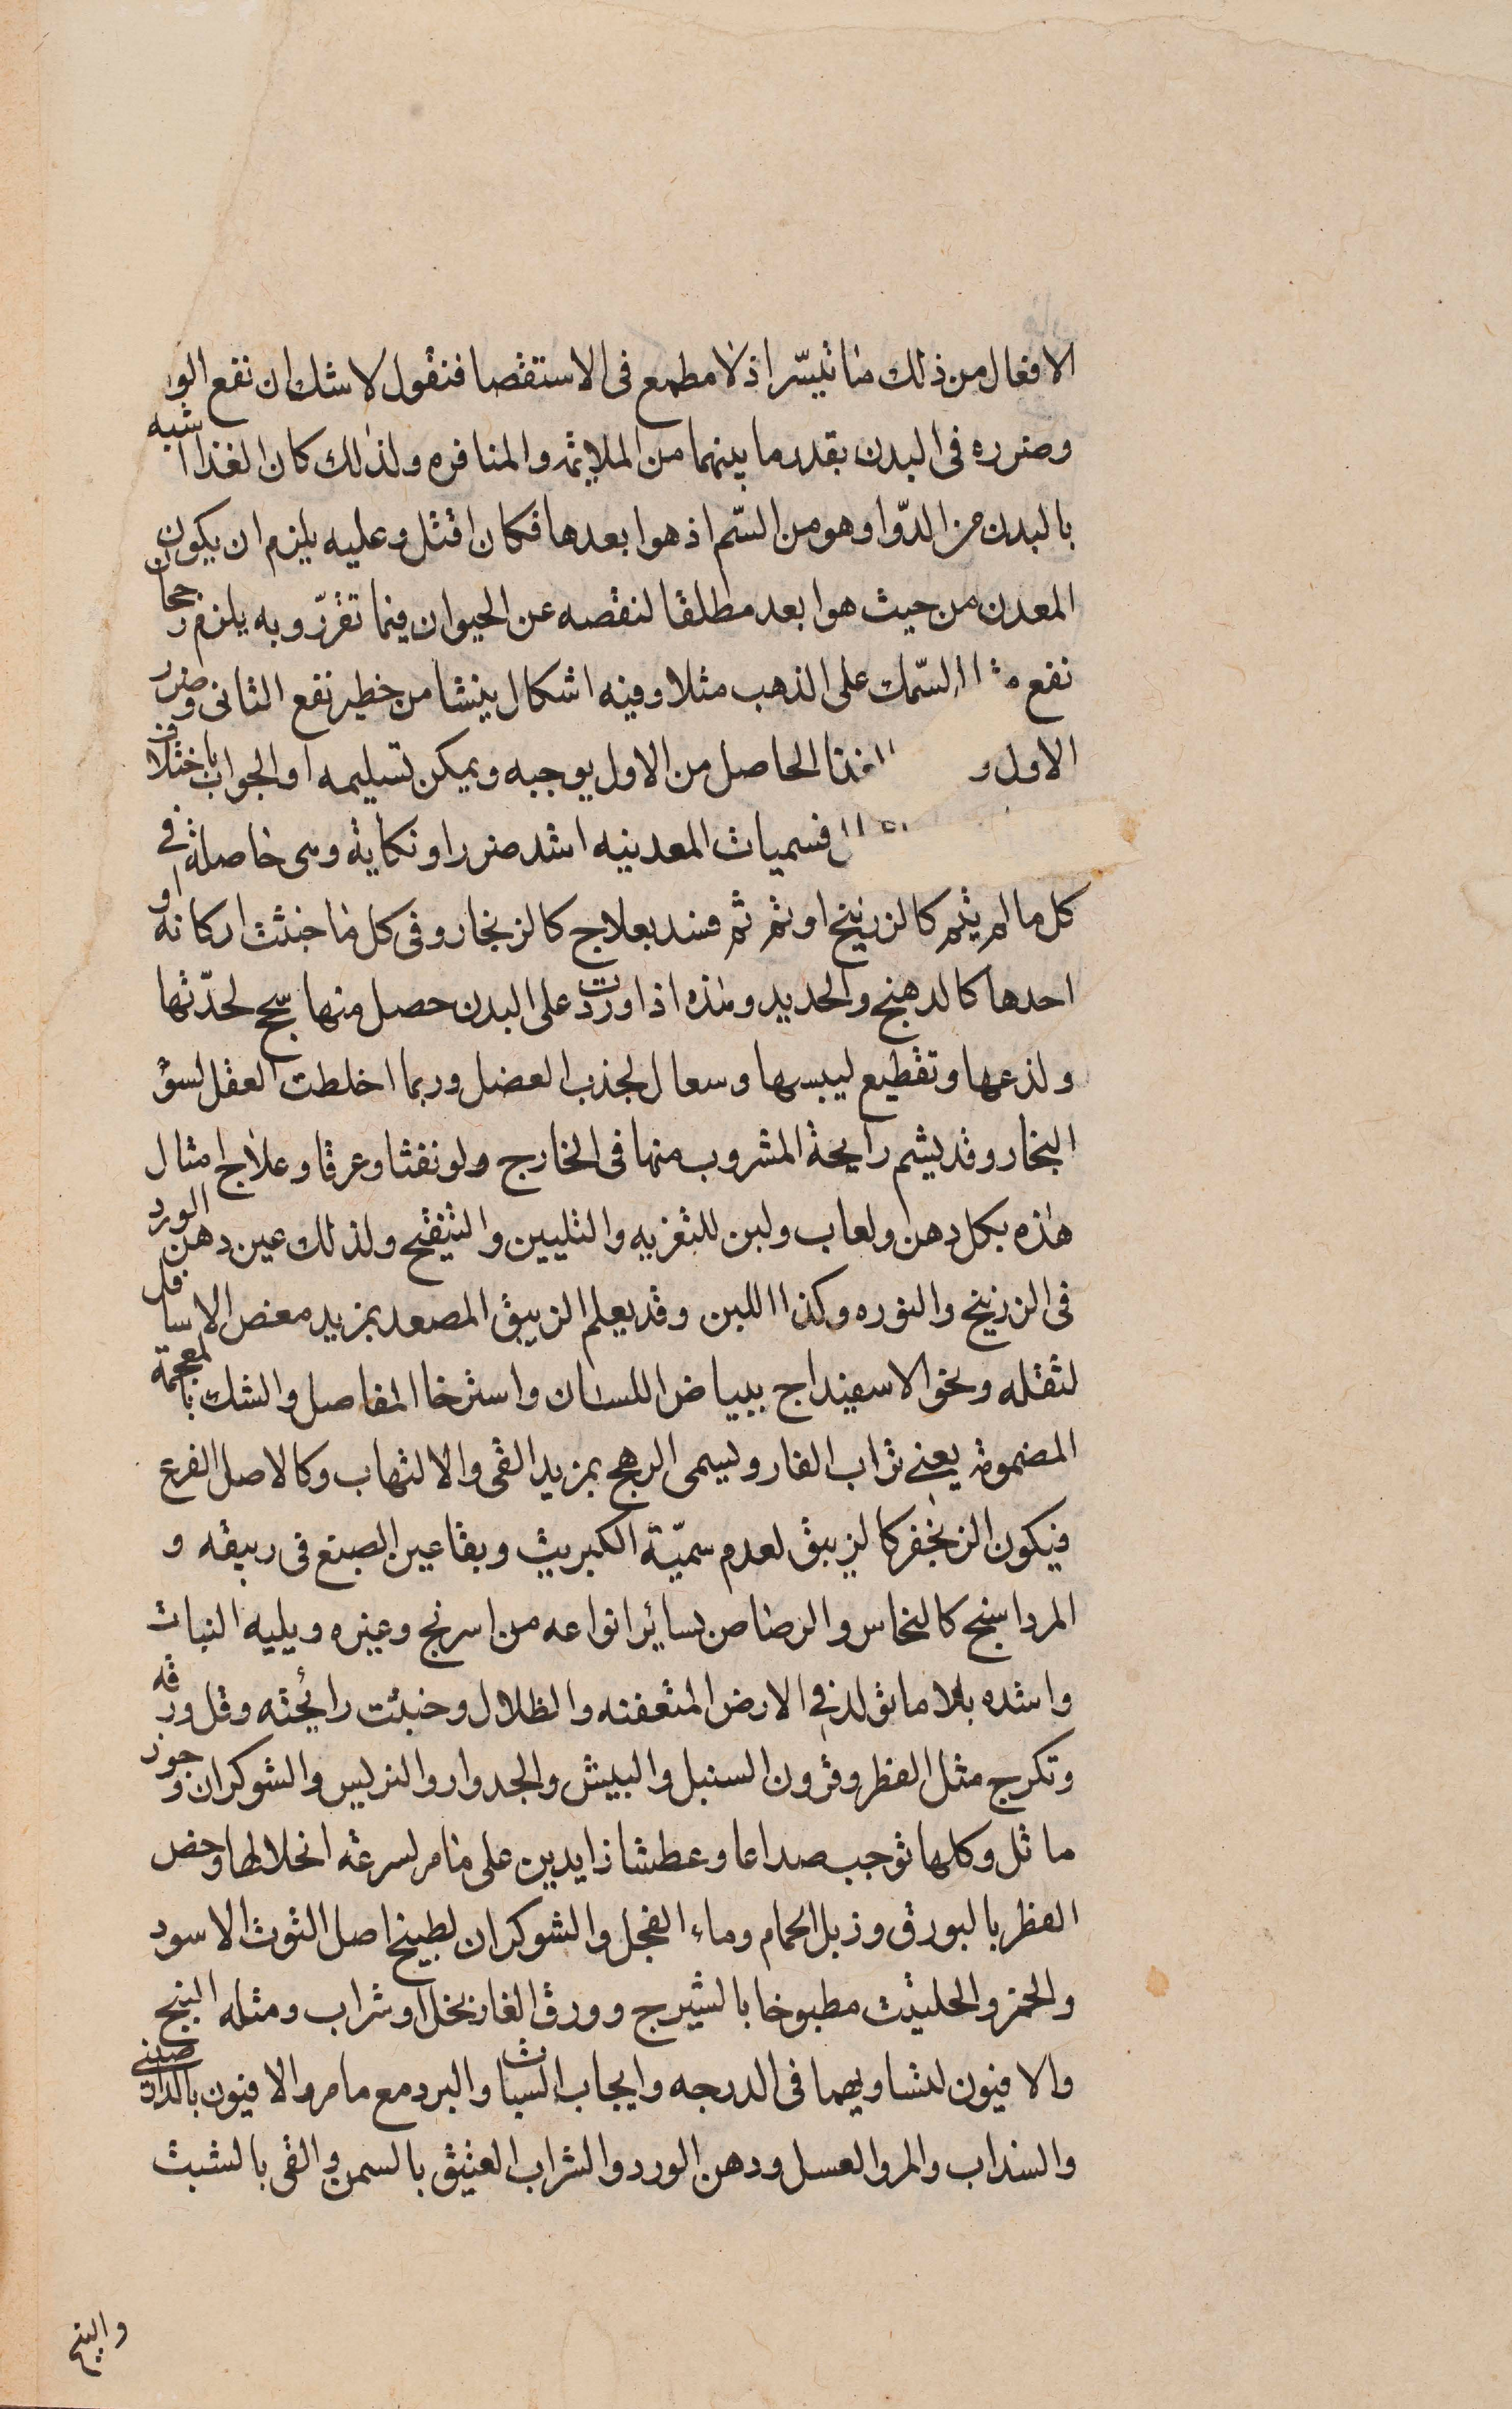 الافعال من ذلك ما تيسّر اذ لا مطمع فى الاستقصا فنقول لا شك ان نفع الو
وضرره فى البدن بقدر ما بينهما من الملايمه والمنافره ولذلك كان الغذا اشبه
بالبدن من الدّوا وهو من السّم اذ هو ابعدها فكان اقتل وعليه يلزم ان يكون
المعدن من حيث هو ابعد مطلقا لنقصه عن الحيوان فيما تقرّر وبه يلزم رجحان
نفع السّمك على الذهب مثلا وفيه اشكال ينشا من خطير نفع الثانى وضرر
الاول و الحاصل من الاول يوجبه ويمكن تسليمه او الجواب باختلاف
فسميات المعدنيه اشد ضررا ونكاية وهى حاصلة فى
كل ما لم يتم كالزرنيخ او تم ثم فسد بعلاج كالزنجار وفى كل ما خبثت اركانه او
احدها كالدهنج والحديد وهذه اذا وردت على البدن حصل منها سحج لحدّتها
ولذعها وتقطيع ليبسها وسعال لجذب العضل وربما اخلطت العقل لسؤ
البخار وقد يشم رايحة المشروب منها فى الخارج ولو نفثا وعرقا وعلاج امثال
هذه بكل دهن ولعاب ولبن للتغريه والتليين والتيفتح ولذلك عين دهن الورد
فى الزرنيخ والنوره وكذا اللبن وقد يعلم الزيبق المصعد بمزيد مغص الاسافل
لثقله ونحو الاسفيداج ببياض اللسان واسترخا المفاصل والشك بالمعجمة
المضمومة يعنى تراب الفار ويسمى الرهج بمزيد القى والالتهاب وكالاصل الفرع
فيكون الزنجفر كالزيبق لعدم سميّة الكبريت وبقا عين الصبغ فى ربيقه و
المرداسنج كالنحاس والرصاص بساير انواعه من اسرنج وغيره ويليه النبات
واشده بلا ما تولد فى الارض المتعفنه والظلال وخبثت رايحته وقل ورقه
وتكرج مثل الفطر وقرون السنبل والبيش والجدوار والتربس والشوكران وجوز
ماثل وكلها توجب صداعا وعطشا زايدين على ما مر لسرعة انحلالها وخص
الفطر بالبورق وزبل الحمام وماء الفجل والشوكران بطبيخ اصل التوت الاسود
والخمر والحلتيت مطبوخا بالشيرج وورق الغار بخل او شراب ومثله البنج
والافيون لتساويهما فى الدرجه وايجاب السبات والبرد مع ما مر والافيون بالدارصينى
والسداب والمر والعسل ودهن الورد والشراب العتيق بالسمن والقى بالشبث
والبنج